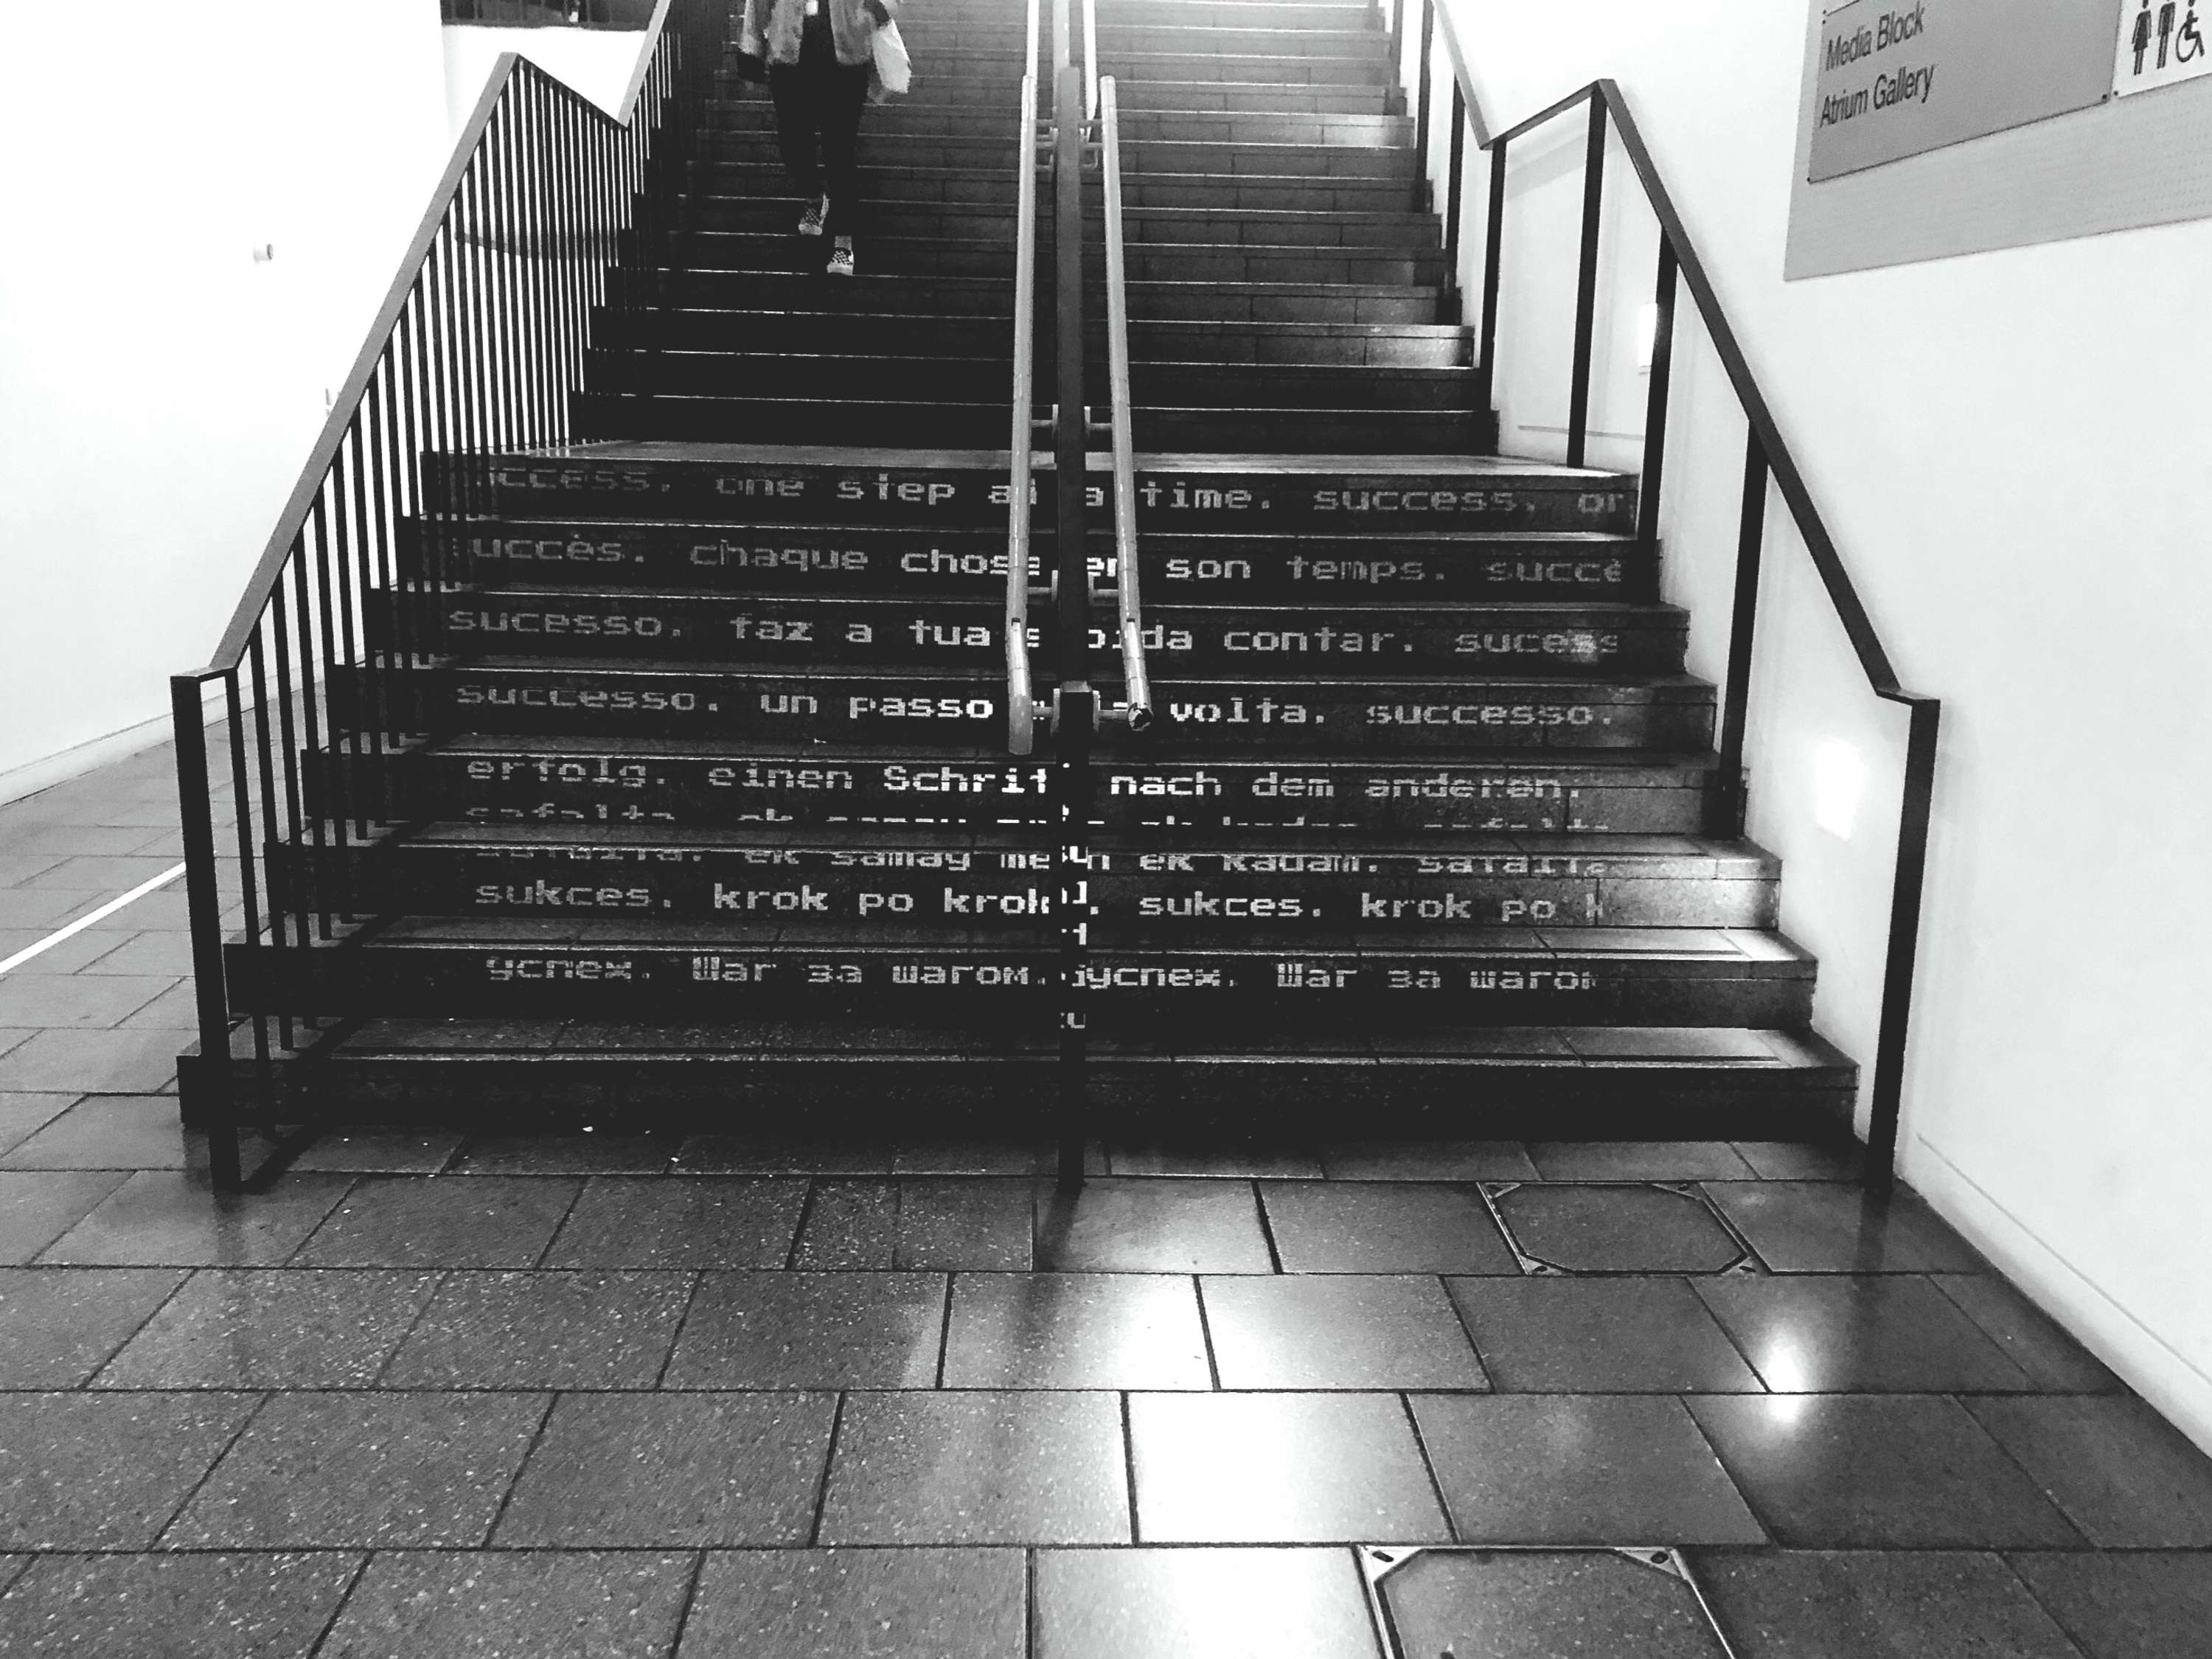 Media Block
Atrium Gallery
one step a time. success,
chaque chose en son temps.
sucesso. faz a tua contar.
successo. un passo volta. successo.
erfolg. einen Schrit nach dem anderen.
ek samay me ek kadam.
sukces. krok po krok. sukces. krok po
успех. Шаг за шагом. успех. Шаг за